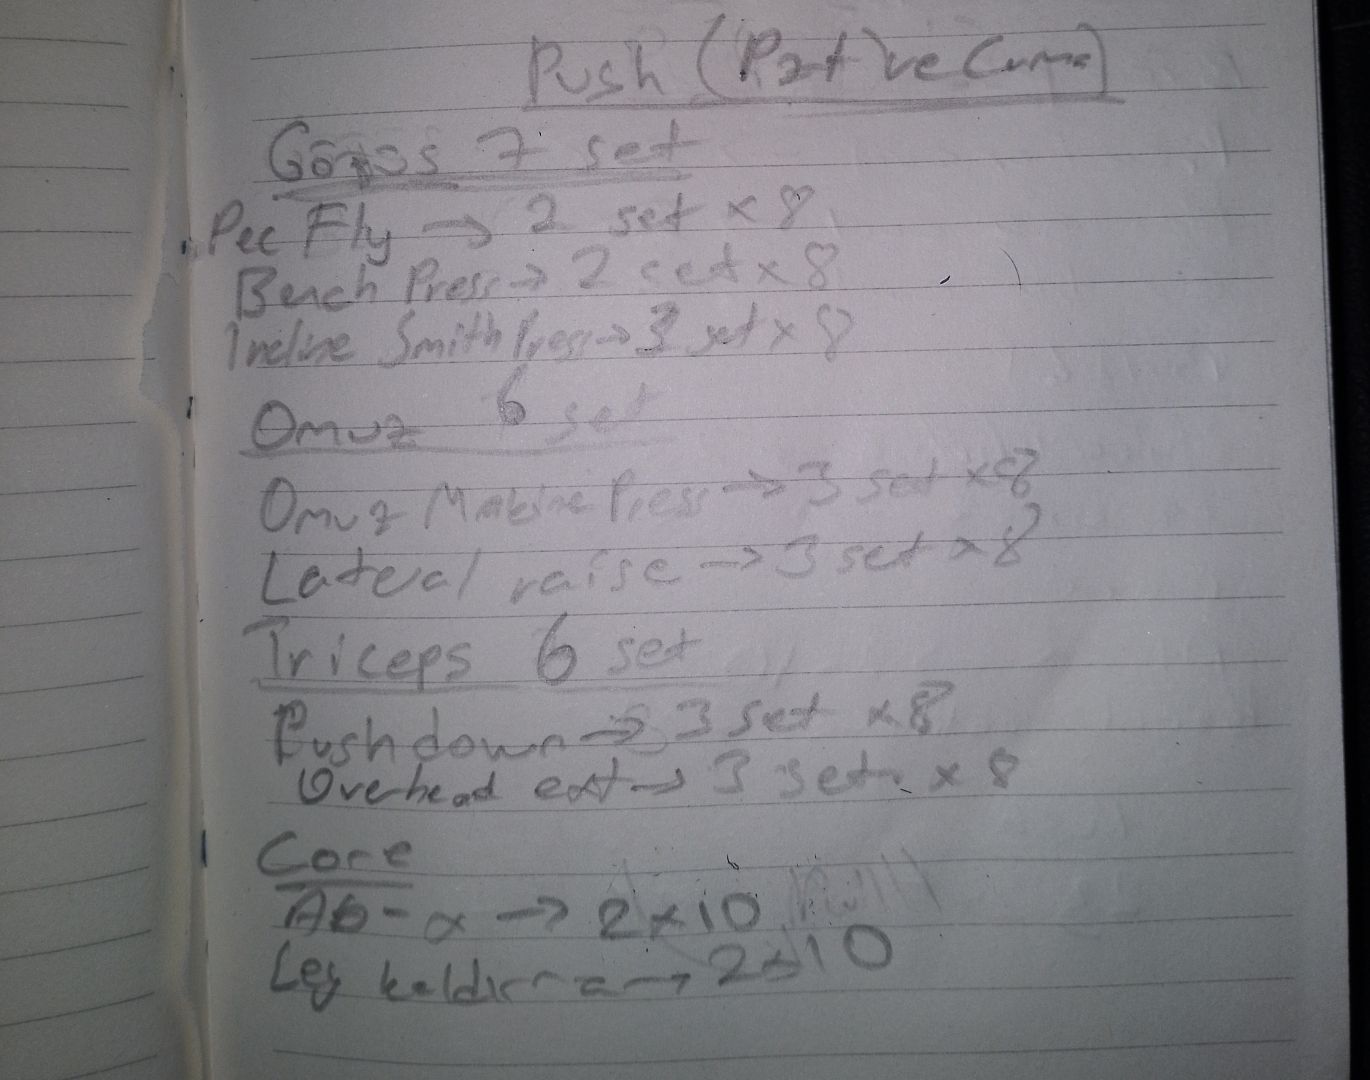 Push (Pzt) ve Cuma)
Göğüs 7 set
Pec Fly → 2 set x 8
Bench Press → 2 set x 8
Incline Smith Press → 3 set x 8
Omuz 6 set
Omuz Makine Press → 3 set x 8
Lateral raise → 3 set x 8
Triceps 6 set
Pushdown → 3 set x 8
Overhead ext → 3 set x 8
Core
Ab-x → 2x10
Leg kaldırma → 2x10